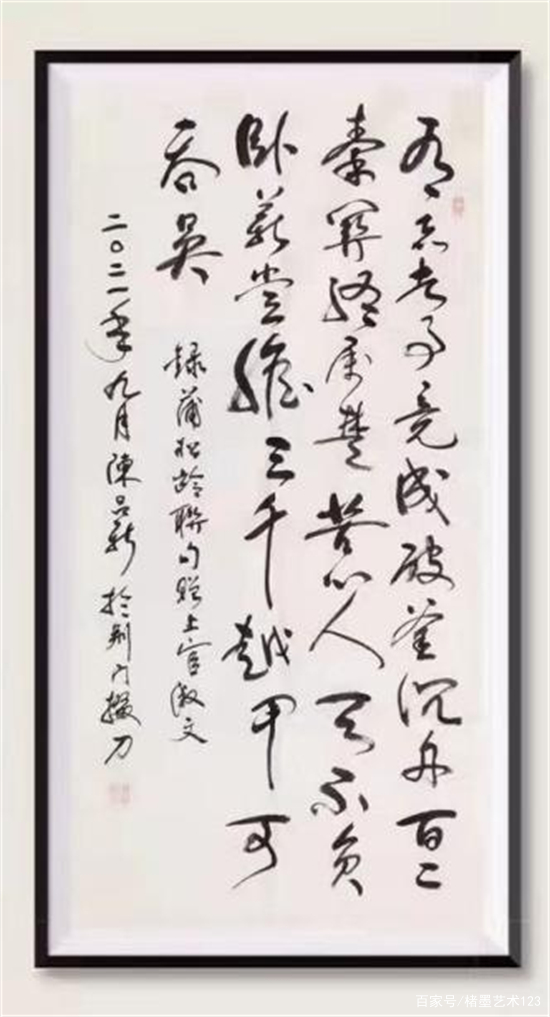 有志者事竟成破釜沉舟百二
秦關終属楚苦心人天不負
卧薪尝膽三千越甲可
吞吴
録蒲松龄聯句赠上官淑文
二〇二一年九月陳品新於荆门掇刀
百家号/楮墨艺术123